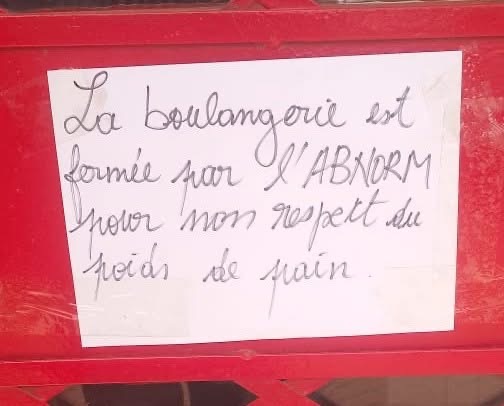 La boulangerie est
fermée par l'ABNORM
pour non respect du
poids de pain.